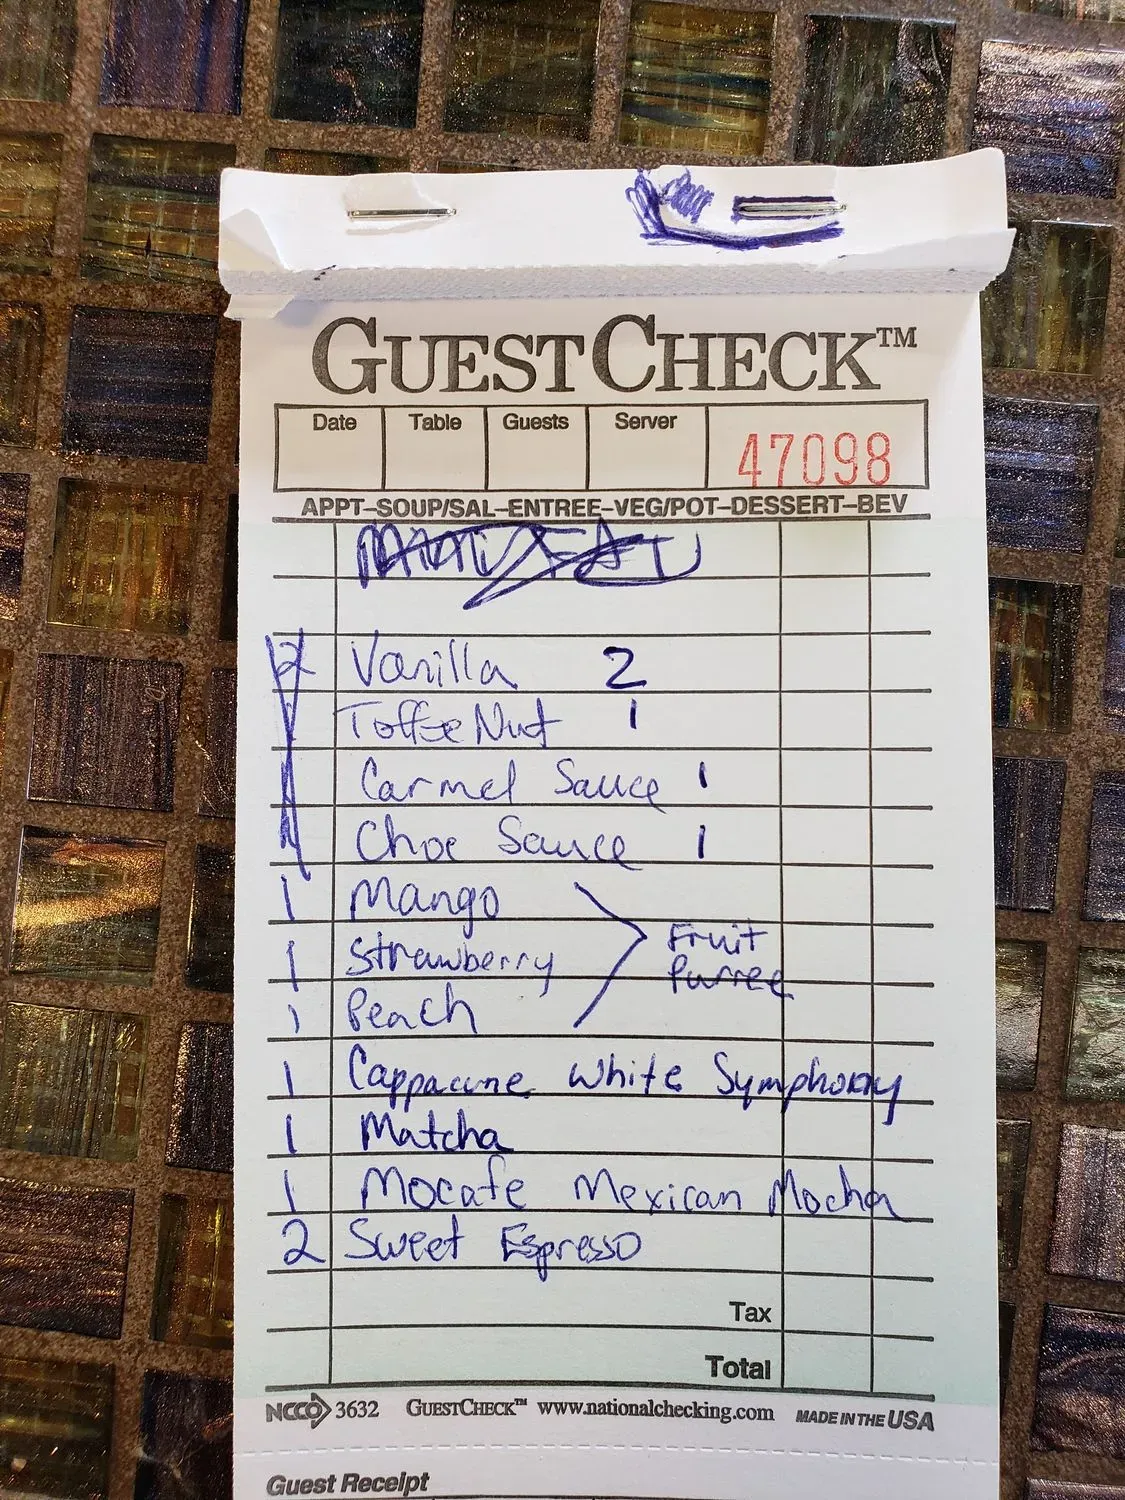 GUESTCHECK™
Date Table Guests Server
47098
APPT–SOUP/SAL–ENTREE–VEG/POT–DESSERT–BEV
Vanilla 2
Toffee Nut 1
Carmel Sauce 1
Choc Sauce 1
1 Mango
1 Strawberry
Fruit
Purree
1 Peach
1 Cappacine White Symphony
1 Matcha
1 Mocafe Mexican Mocha
2 Sweet Espresso
Tax
Total
NCCO 3632 GUESTCHECK™ www.nationalchecking.com MADE IN THE USA
Guest Receipt